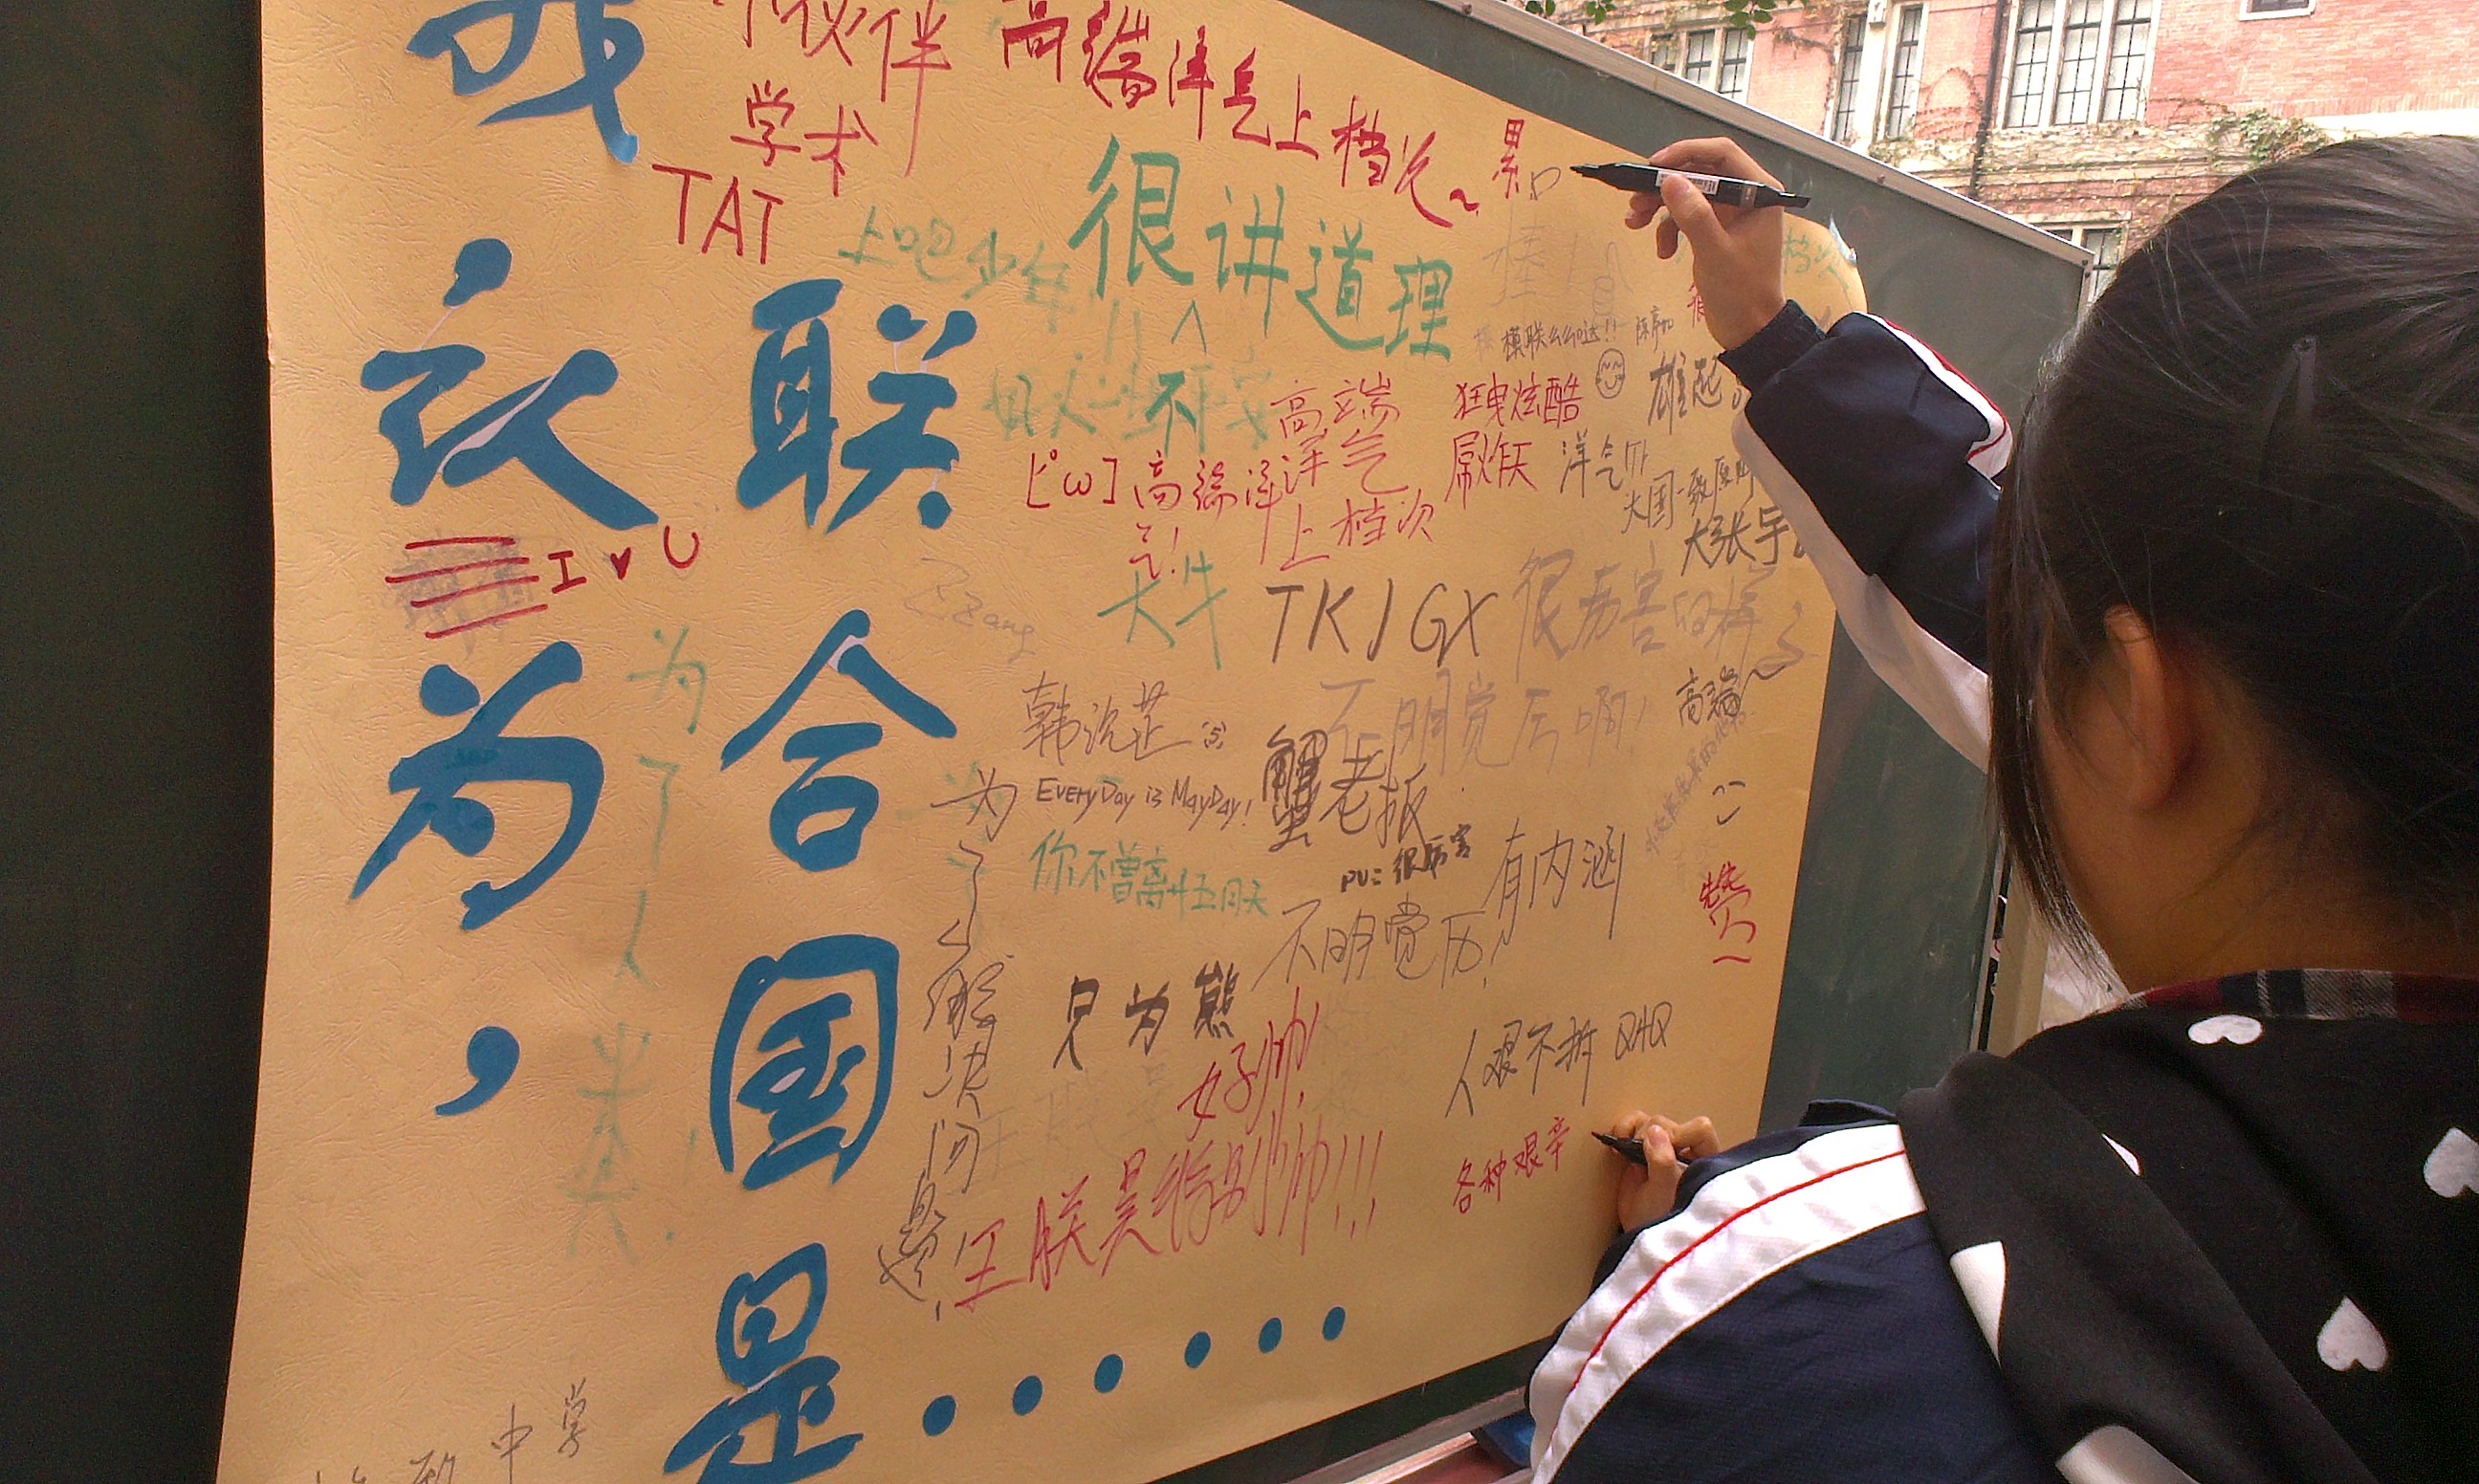 我认为，
联合国是······
小伙伴
学术
TAT
高端洋气上档次~
累
上吧少年!!
很讲道理
不
模联么么哒!!
高端
洋气
上档次
狂曳炫酷
屌炸天
洋气
雄起
高端洋
气!
I ♥ U
大国一致原则
大张宇
大牛
TKJGX
很厉害的样
不明觉厉啊!
高端~
为了人类!
EveryDay is MayDay!
蟹老板
你不曾离开五月天
PU: 很厉害
有内涵
不明觉厉!
赞~
为了解决问题
只为熊
好帅!
王朕昊特别帅!!!
人艰不拆 QAQ
各种艰辛
中学